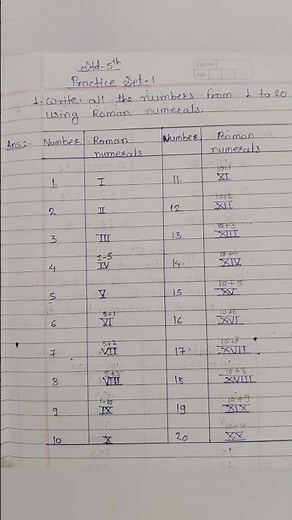 Std-5th
Practice Set-1
1. Write all the numbers from 1 to 20
using Roman numerals.
Ans:- Number Roman numerals Number Roman numerals
1 I 11 10+1 XI
2 II 12 10+2 XII
3 III 13 10+3 XIII
4 1-5 IV 14 10+4 XIV
5 V 15 10+5 XV
6 5+1 VI 16 10+6 XVI
7 5+2 VII 17 10+7 XVII
8 5+3 VIII 18 10+8 XVIII
9 1-10 IX 19 10+9 XIX
10 X 20 10+10 XX